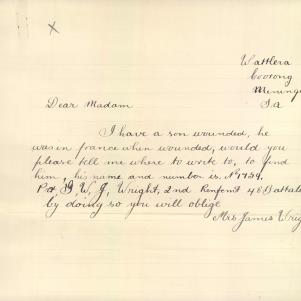 Wattlera
Coorong
Mening
S.A
Dear Madam
I have a son wounded, he
was in france when wounded, would you
please tell me where to write to, to find
him, his name and number is, No 1759.
Pat, W, J, Wright, 2nd Renfont 48 Battal
by doing so you will oblige
Mrs James Wrig